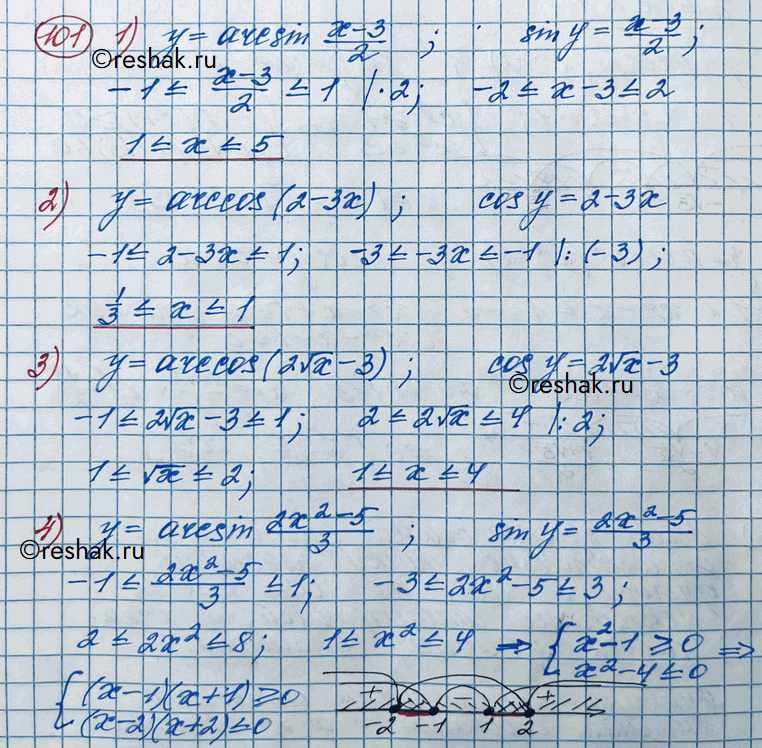 101 1) y = arcsin (x-3)/2 ; sin y = (x-3)/2 ;
©reshak.ru
-1 ≤ (x-3)/2 ≤ 1 |·2; -2 ≤ x-3 ≤ 2
1 ≤ x ≤ 5
2) y = arccos(2-3x) ; cos y = 2-3x
-1 ≤ 2-3x ≤ 1; -3 ≤ -3x ≤ -1 |:(-3) ;
1/3 ≤ x ≤ 1
3) y = arccos(2√x - 3) ; cos y = 2√x - 3
©reshak.ru
-1 ≤ 2√x - 3 ≤ 1; 2 ≤ 2√x ≤ 4 |:2;
1 ≤ √x ≤ 2; 1 ≤ x ≤ 4
4) y = arcsin (2x²-5)/3 ; sin y = (2x²-5)/3
©reshak.ru
-1 ≤ (2x²-5)/3 ≤ 1; -3 ≤ 2x²-5 ≤ 3 ;
2 ≤ 2x² ≤ 8; 1 ≤ x² ≤ 4 ⇒ { x²-1 ≥ 0 ⇒
x²-4 ≤ 0
{ (x-1)(x+1) ≥ 0 + - - +
(x-2)(x+2) ≤ 0 -2 -1 1 2
©reshak.ru